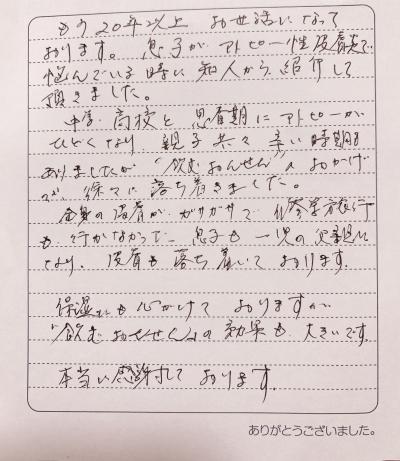 もう20年以上 お世話になって
おります。息子が アトピー性皮膚炎で
悩んでいる時に 知人から 紹介して
頂きました。
中学、高校と 思春期に アトピーが
ひどくなり、親子共々 辛い時期も
ありましたが 「飲むおんせん」のおかげ
で、徐々に 落ち着きました。
全身の皮膚が ガサガサで、修学旅行
も 行かなかった 息子も 一児の父親に
なり、皮膚も 落ち着いて おります。
保湿も 心がけて おりますが
「飲む おんせん」の 効果も 大きいです。
本当に感謝して おります。
ありがとうございました。